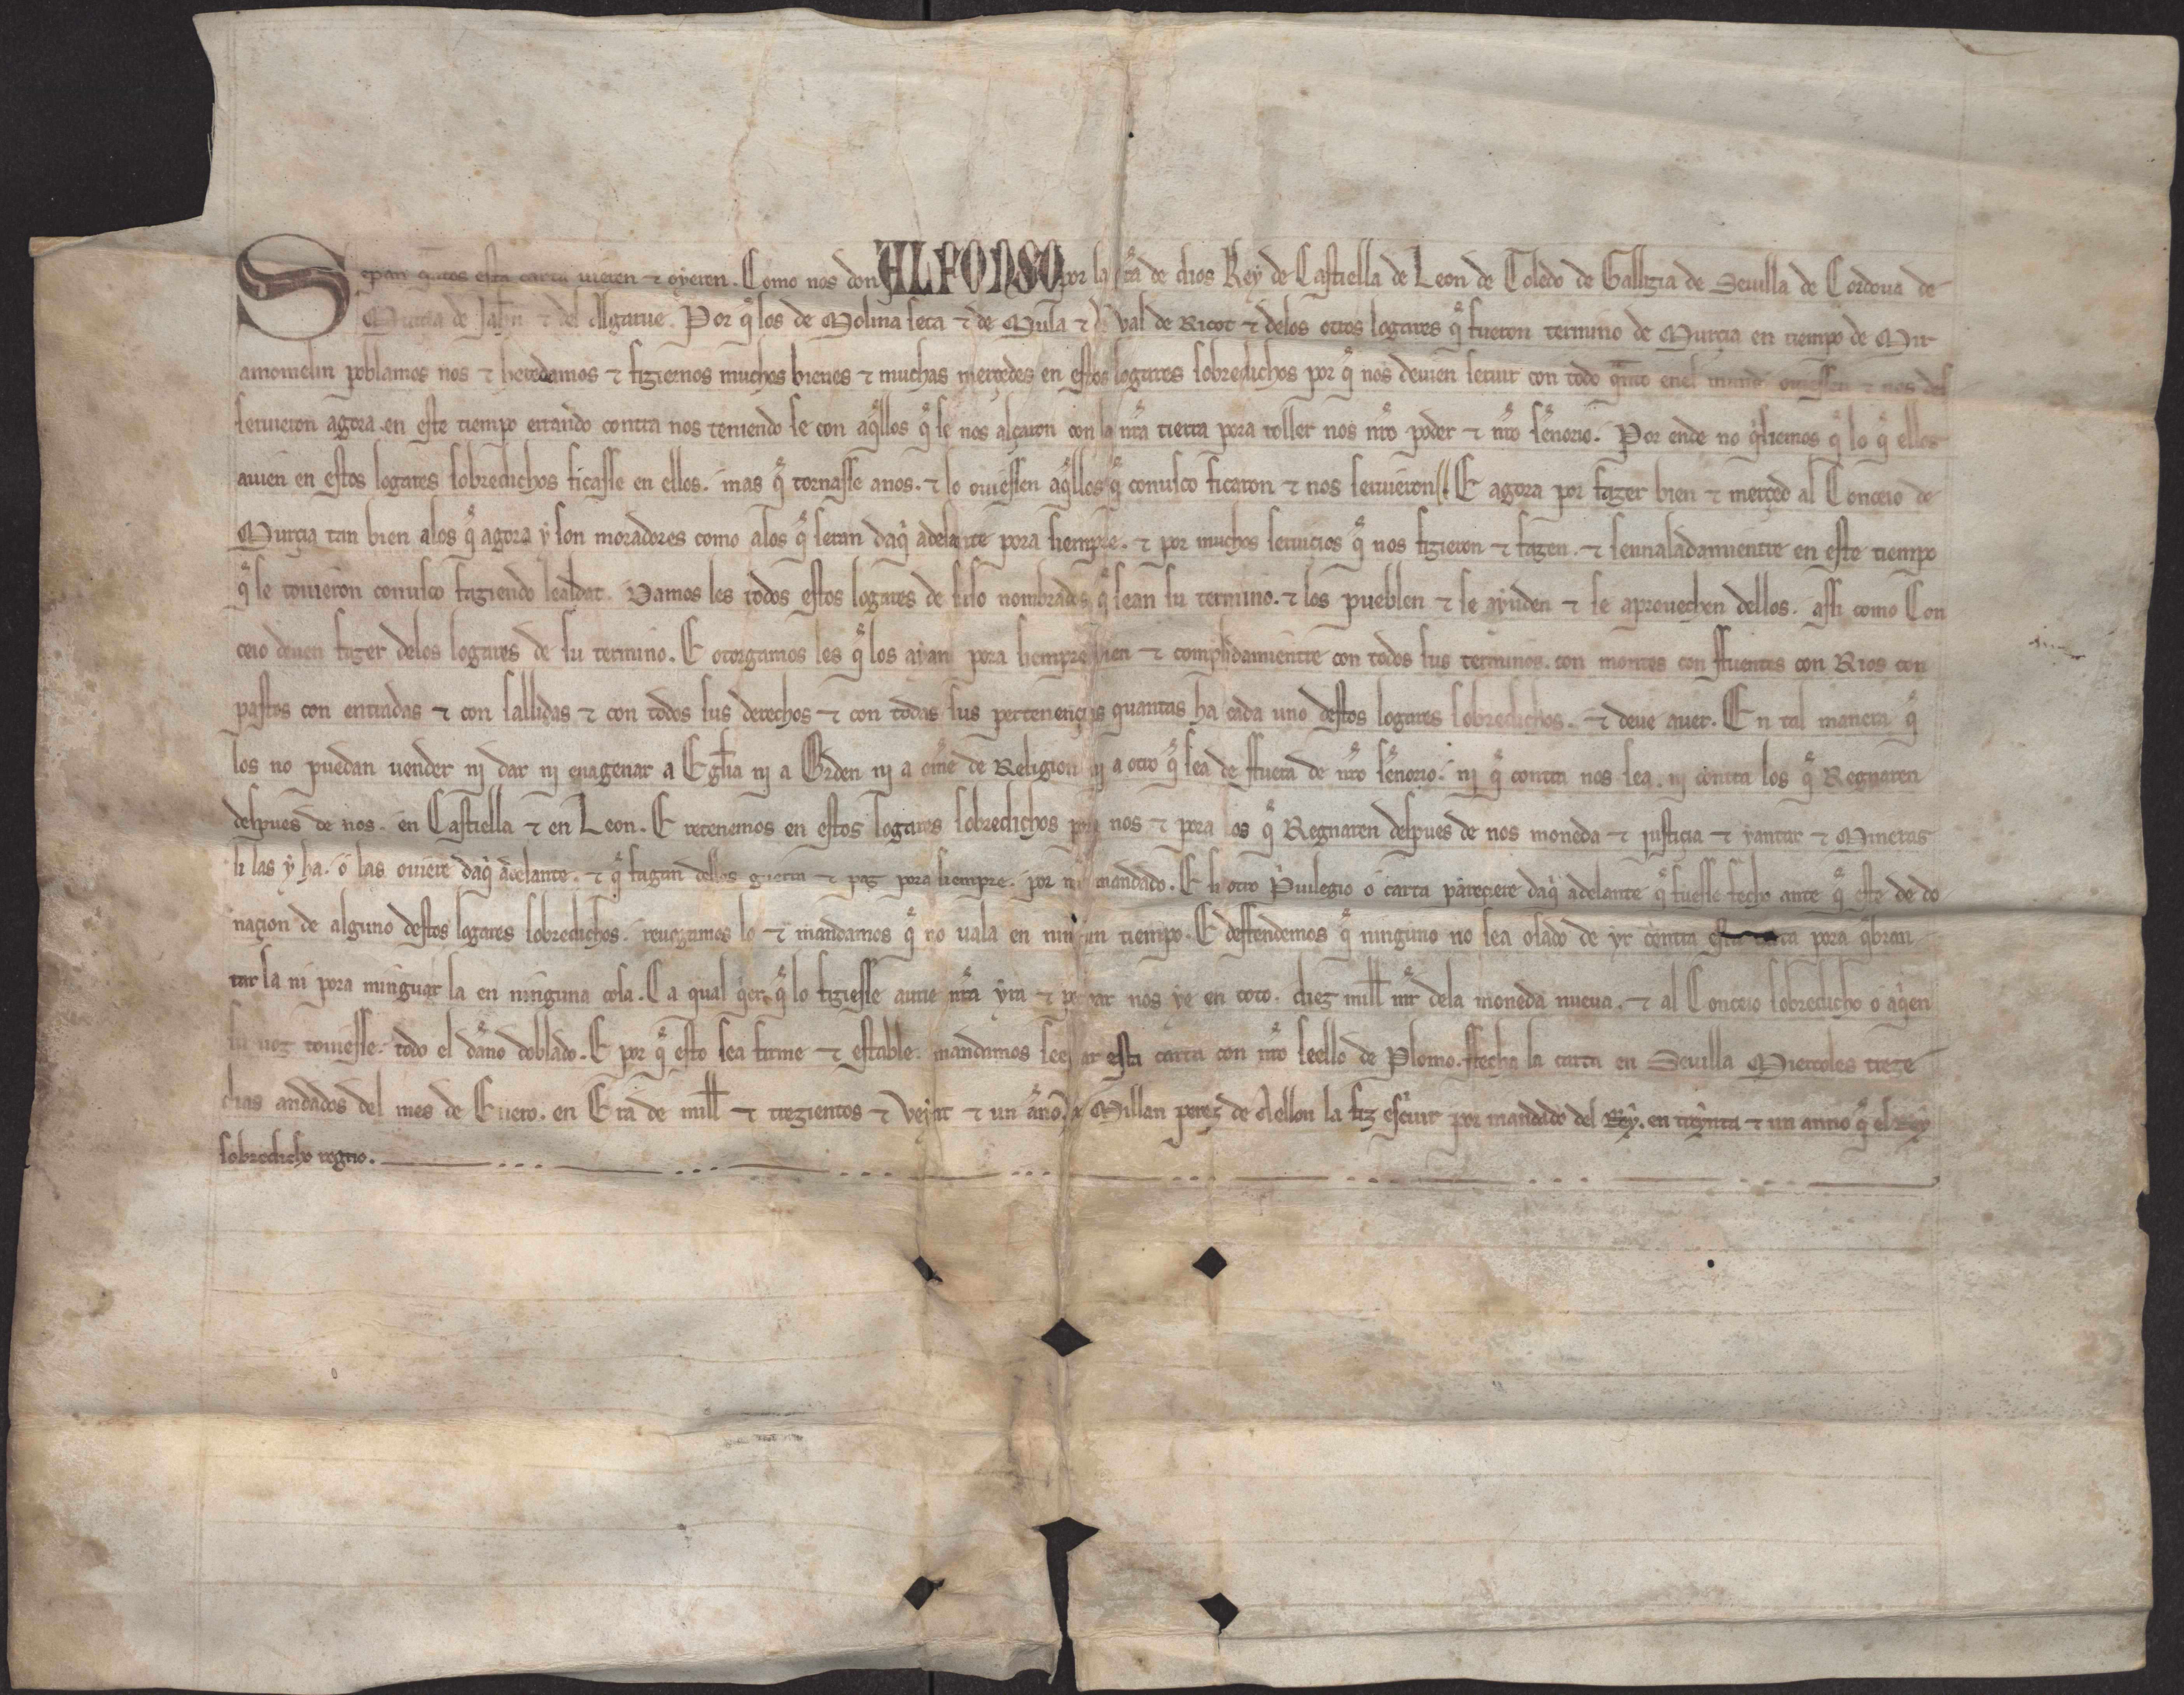 Sepan qͣntos esta carta uieren ⁊ oyeren. Como nos don ALFONSO por la gr̃a de dios Rey de Castiella de Leon de Toledo de Gallizia de Seuilla de Cordoua de
Murcia de Jahn̄ ⁊ del Algarue. Por q̄ los de Molina seca ⁊ de Mula ⁊ de Val de Ricot ⁊ delos otros logares q̄ fueron termino de Murçia en tiempo de Mir
amomelin poblamos nos ⁊ heredamos ⁊ fiziemos muchos bienes ⁊ muchas merçedes en estos logares sobredichos por q̄ nos deuien seruir con todo qͣnto enel mundo ouiessen ⁊ nos des
seruieron agora en este tiempo errando contra nos teniendo se con aq̄llos q̄ se nos alçaron con la nr̃a tierra pora toller nos nr̃o poder ⁊ nr̃o sen̄orio. Por ende no qͥsiemos q̄ lo q̄ ellos
auien en estos logares sobredichos ficasse en ellos. mas q̄ tornasse anos. ⁊ lo ouiessen aq̄llos q̄ conusco ficaron ⁊ nos seruieron. E agora por fazer bien ⁊ merçed al Conceio de
Murçia tan bien alos q̄ agora y son moradores como alos q̄ seran daqͥ adelante pora siempre. ⁊ por muchos seruiçios q̄ nos fizieron ⁊ fazen. ⁊ sennaladamientre en este tiempo
q̄ se touieron conusco faziendo lealdat. Damos les todos estos logares de suso nombrados q̄ sean su termino. ⁊ los pueblen ⁊ se ayuden ⁊ se aprouechen dellos. assi como Con
ceio deuen fazer delos logares de su termino. E otorgamos les q̄ los ayan pora siempre bien ⁊ complidamientre con todos sus terminos. con montes con ffuentes con Rios con
pastos con entradas ⁊ con sallidas ⁊ con todos sus derechos ⁊ con todas sus pertenençias quantas ha cada uno destos logares sobredichos. ⁊ deue auer. En tal manera q̄
los no puedan uender ni dar ni enagenar a Egl̃ia ni a Orden ni a om̄e de Religion ni a otro q̄ sea de ffuera de nr̃o sen̄orio. ni q̄ contra nos sea. ni contra los q̄ Regnaren
despues de nos. en Castiella ⁊ en Leon. E retenemos en estos logares sobredichos pora nos ⁊ pora los q̄ Regnaren despues de nos moneda ⁊ justicia ⁊ yantar ⁊ Mineras
si las y ha. o las ouiere daqͥ adelante. ⁊ q̄ fagan dellos guerra ⁊ paz pora siempre. por nr̃o mandado. E si otro pͥuilegio o carta pareçiere daqͥ adelante q̄ fuesse fecho ante q̄ este de do
naçion de alguno destos logares sobredichos. reuogamos lo ⁊ mandamos q̄ no uala en ningun tiempo. E deffendemos q̄ ninguno no sea osado de yr contra esta carta pora qͣbran
tar la ni pora minguar la en ninguna cosa. Ca qual qͥer q̄ lo fiziesse aurie nr̃a yra ⁊ pechar nos ye en coto. diez mill mr̄ dela moneda nueua. ⁊ al Conceio sobredicho o aqͥen
su uoz touiesse. todo el dan̄o doblado. E por q̄ esto sea firme ⁊ estable. mandamos seellar esta carta con nr̃o seello de Plomo. ffecha la carta en Seuilla Miercoles treze
dias andados del mes de Enero. en Era de mill ⁊ trezientos ⁊ veynt ⁊ un an̄o. Millan perez de Aellon la fiz escͥuir por mandado del Rey. en treynta ⁊ un anno q̄ el Rey
sobredicho regno.